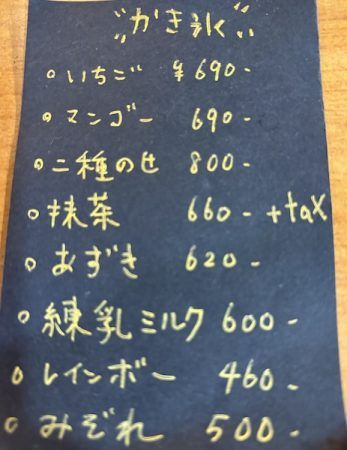 "かき氷"
○いちご ¥690-
○マンゴー 690-
○二種のせ 800-
○抹茶 660- +tax
○あずき 620-
○練乳ミルク 600-
○レインボー 460-
○みぞれ 500-